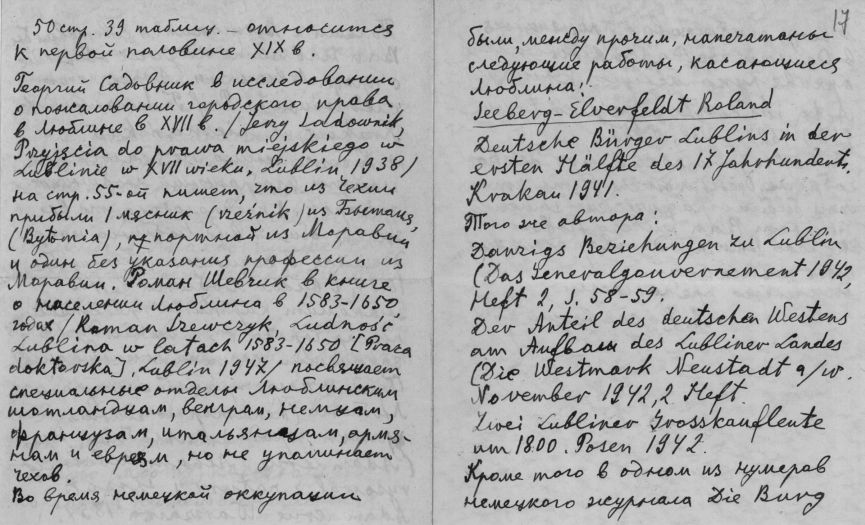 50 стр. 39 таблиц. – относится
к первой половине XIX в.
Георгий Садовник в исследовании
о пожаловании городского права
в Люблине в XVII в. /Jerzy Sadownik,
Przyjęcia do prawa miejskiego w
Lublinie w XVII wieku, Lublin, 1938/
на стр. 55-ой пишет, что из Чехии
прибыли 1 мясник (řeźnik) из Бытома,
(Bytomia), портной из Моравии
и один без указания профессии из
Моравии. Роман Шевчик в книге
о населении Люблина в 1583-1650
годах /Roman Szewczyk, Ludność
Lublina w latach 1583-1650 [Praca
doktorska], Lublin 1947/ посвящает
специальные отделы Люблинским
шотландцам, венграм, немцам,
французам, итальянцам, армя-
нам и евреям, но не упоминает
чехов.
Во время немецкой оккупации
17
были, между прочим, напечатаны
следующие работы, касающиеся
Люблина:
Seeberg-Elverfeldt Roland
Deutsche Bürger Lublins in der
ersten Hälfte des 17 Jahrhundert,
Krakau 1941.
Того же автора:
Danzigs Beziehungen zu Lublin
(Das Generalgouvernement 1942,
Heft 2, S. 58-59.
Der Anteil des deutschen Westens
am Aufbau des Lubliner Landes
(Die Westmark Neustadt a/W.
November 1942, 2 Heft.
Zwei Lubliner Grosskaufleute
um 1800. Posen 1942.
Кроме того в одном из нумеров
немецкого журнала Die Burg